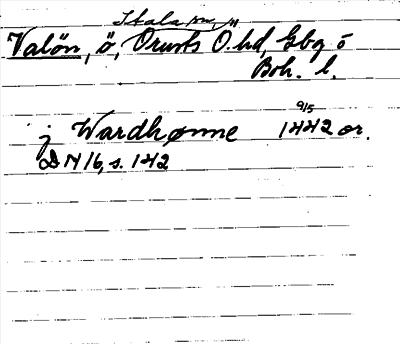 Stala sn
Valön, ö, Orusts V. hd, Gbg o
Boh. l.
9/5
j Wardhønne 1442 or.
DN 16, s. 142